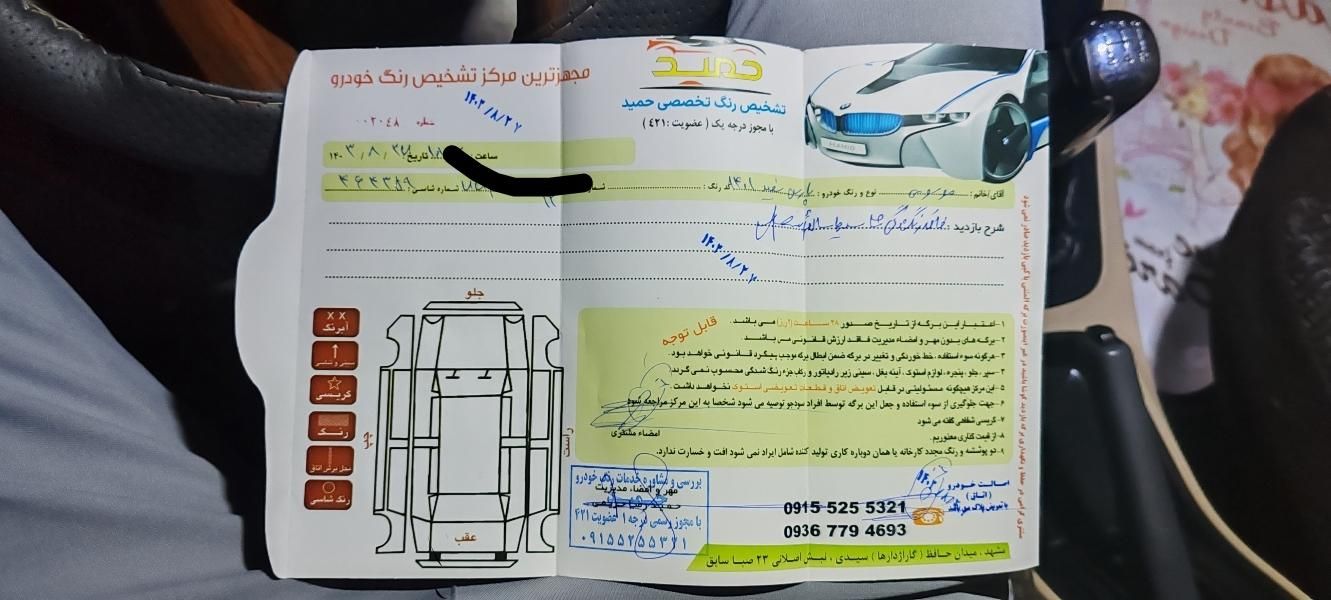 مجهزترین مرکز تشخیص رنگ خودرو
حمید
تشخیص رنگ تخصصی حمید
با مجوز درجه یک ( عضویت : ۴۲۱ )
HAMID
شماره ۰۰۲۰۴۸
۱۴۰۳/۸/۲۲
ساعت
تاریخ: ۱۴۰۳/۸/۲۲
آقای/خانم: موسوی نوع و رنگ خودرو: پارس سفید ۱۴۰۱ کد رنگ:
شماره شاسی: ۴۶۴۳۵۹
شرح بازدید:
۱۴۰۳/۸/۲۲
جلو
چپ
راست
عقب
X X
آبرنگ
سینی و شاسی
گریسی
رنگ
محل برش اتاق
رنگ شاسی
قابل توجه
۱- اعتبار این برگه از تاریخ صدور ۴۸ ساعت (۲روز) می باشد.
۲- برگه های بدون مهر و امضاء مدیریت فاقد ارزش قانونی می باشد.
۳- هرگونه سوء استفاده، خط خوردگی و تغییر در برگه ضمن ابطال برگه موجب پیگرد قانونی خواهد بود.
۴- سپر، جلو، پنجره، لوازم استوک، آینه بغل، سینی زیر رادیاتور و رکاب جزء رنگ شدگی محسوب نمی گردد.
۵- این مرکز هیچگونه مسئولیتی در قبال تعویض اتاق و قطعات تعویضی استوک نخواهد داشت.
۶- جهت جلوگیری از سوء استفاده و جعل این برگه توسط افراد سودجو توصیه می شود شخصا به این مرکز مراجعه شود
۷- گریسی شفقی گفته می شود
۸- از قیمت گذاری معذوریم.
۹- دو پوششه و رنگ مجدد کارخانه یا همان دوباره کاری تولید کننده شامل ایراد نمی شود افت و خسارت ندارد.
امضاء مشتری
مهر و امضاء مدیریت
بررسی و مشاوره خدمات رنگ خودرو
با مجوز رسمی درجه ۱ عضویت ۴۲۱
۰۹۱۵۵۲۵۵۳۲۱
0915 525 5321
0936 779 4693
اصالت خودرو
(اتاق)
با تعویض پلاک می باشد
مشهد، میدان حافظ ( گاراژدارها ) سیدی، نبش اصلانی ۲۳ صبا سابق